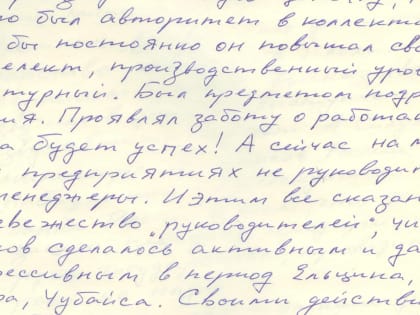 о был авторитет в коллекти
бы постоянно он повышал св
елект, производственный уро
турный. Был предметом подр
ия. Проявлял заботу о работа
а будет успех! А сейчас на м
предприятиях не руководи
менеджеры. И этим все сказан
ебежество „руководителей", чи
ов сделалось активным и да
рессивным в период Ельцина,
ра, Чубайса. Своими действи